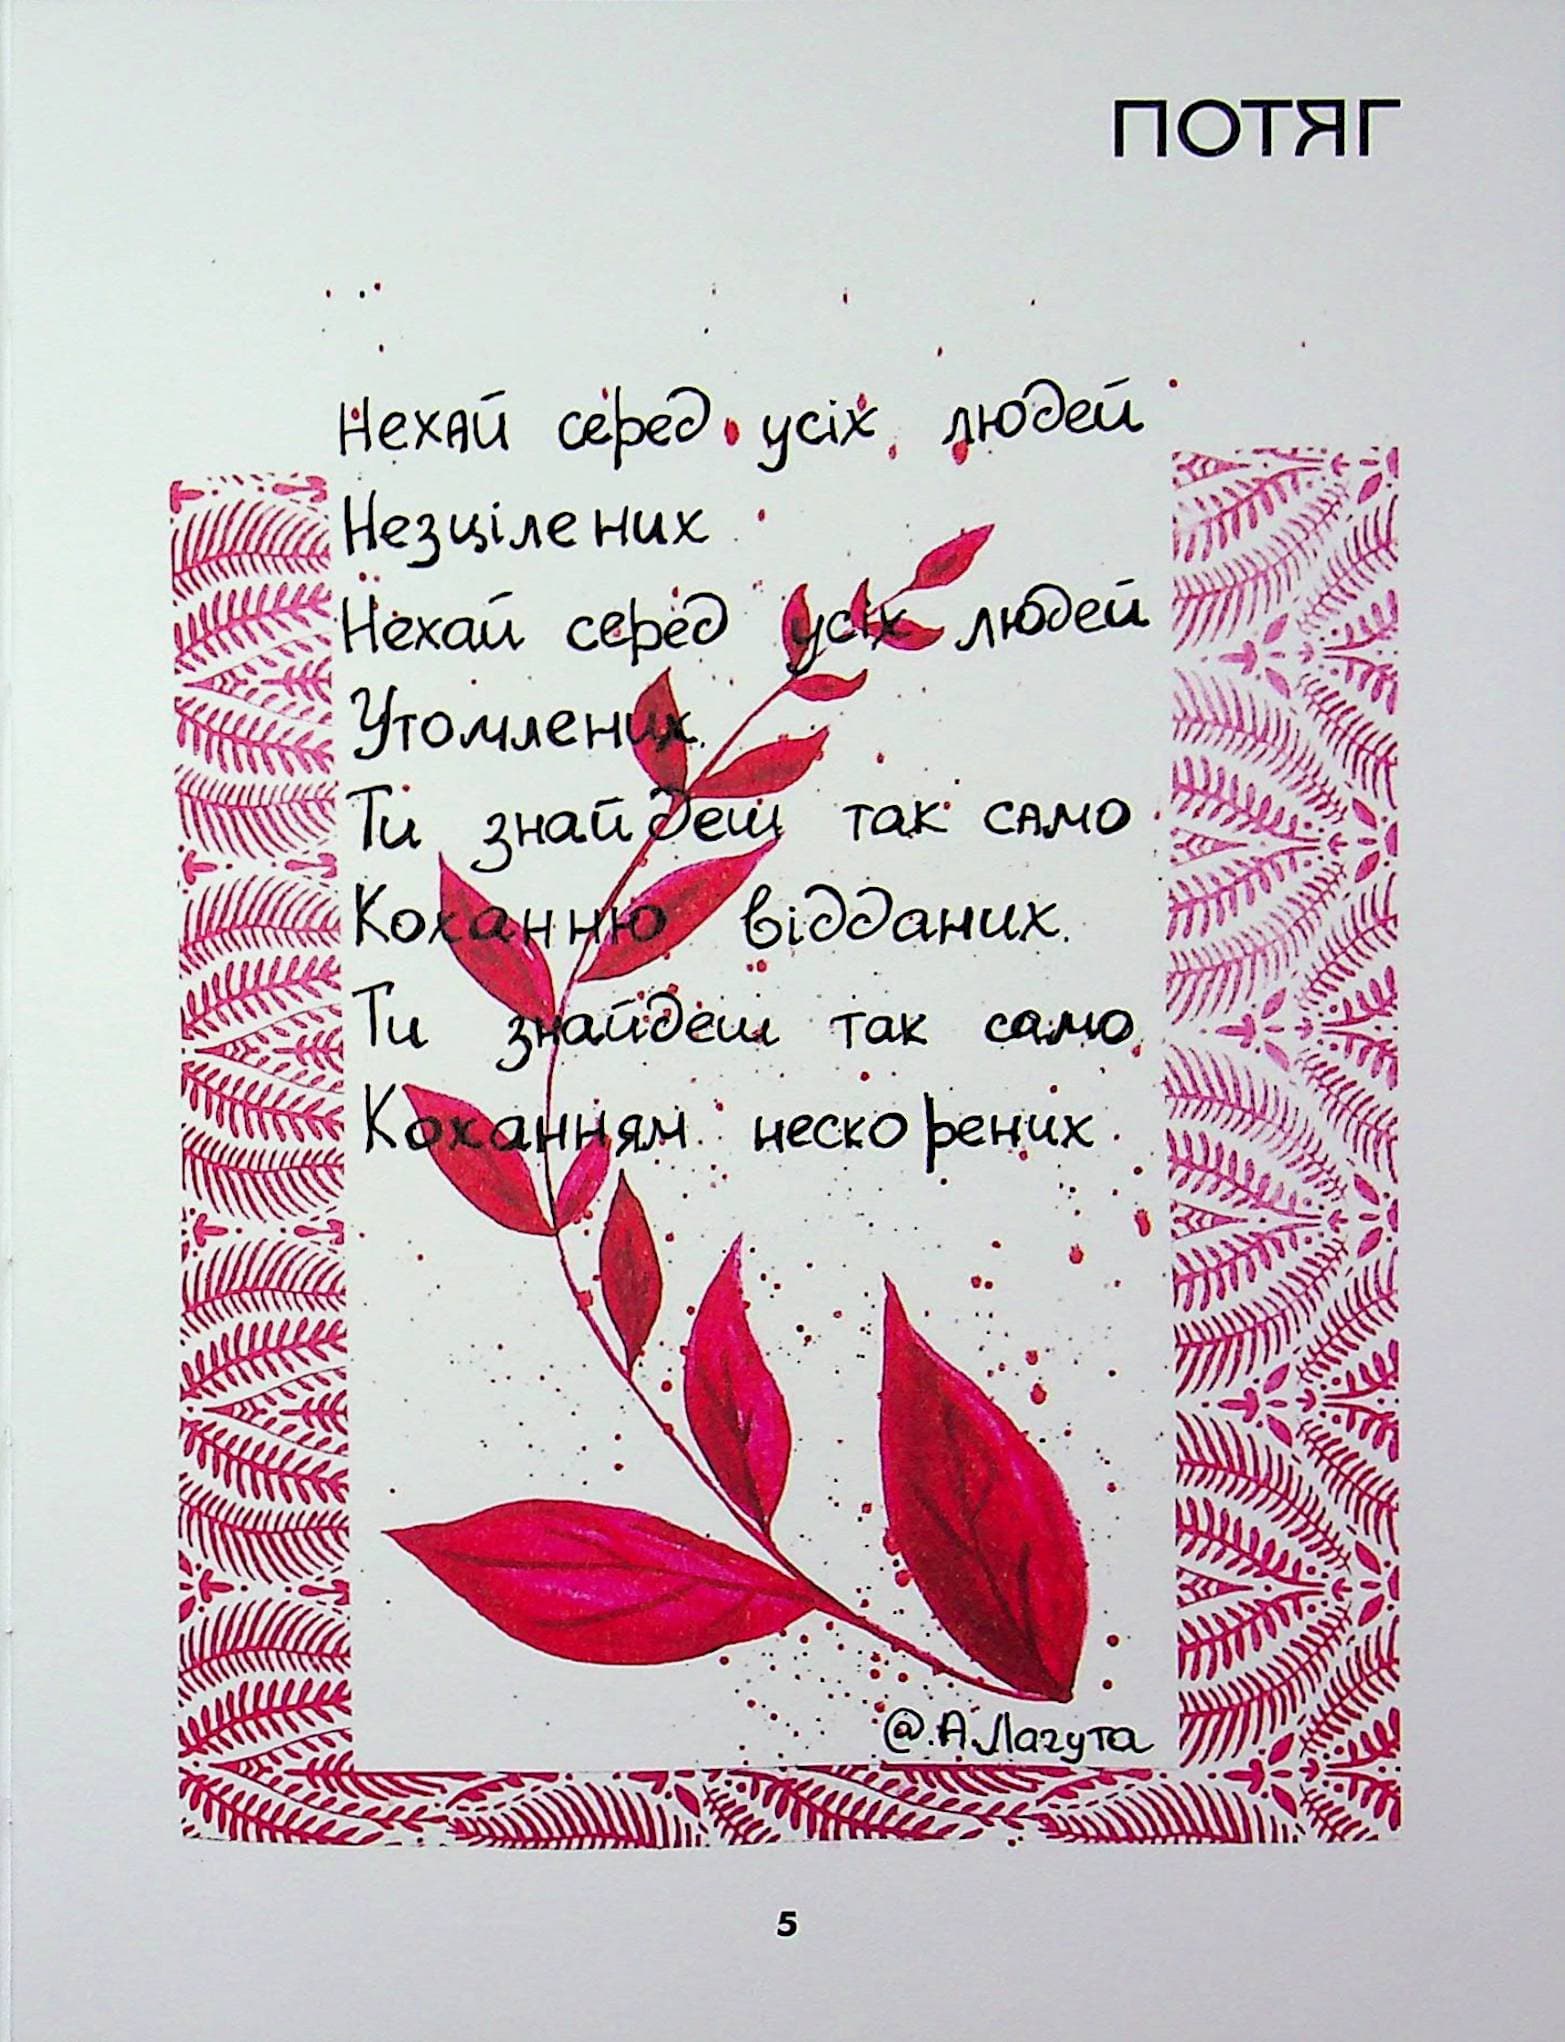 ПОТЯГ
Нехай серед усіх людей
Незцілених
Нехай серед усіх людей
Утомлених.
Ти знайдеш так само
Коханню відданих.
Ти знайдеш так само
Коханням нескорених.
@.А.Лагута
5